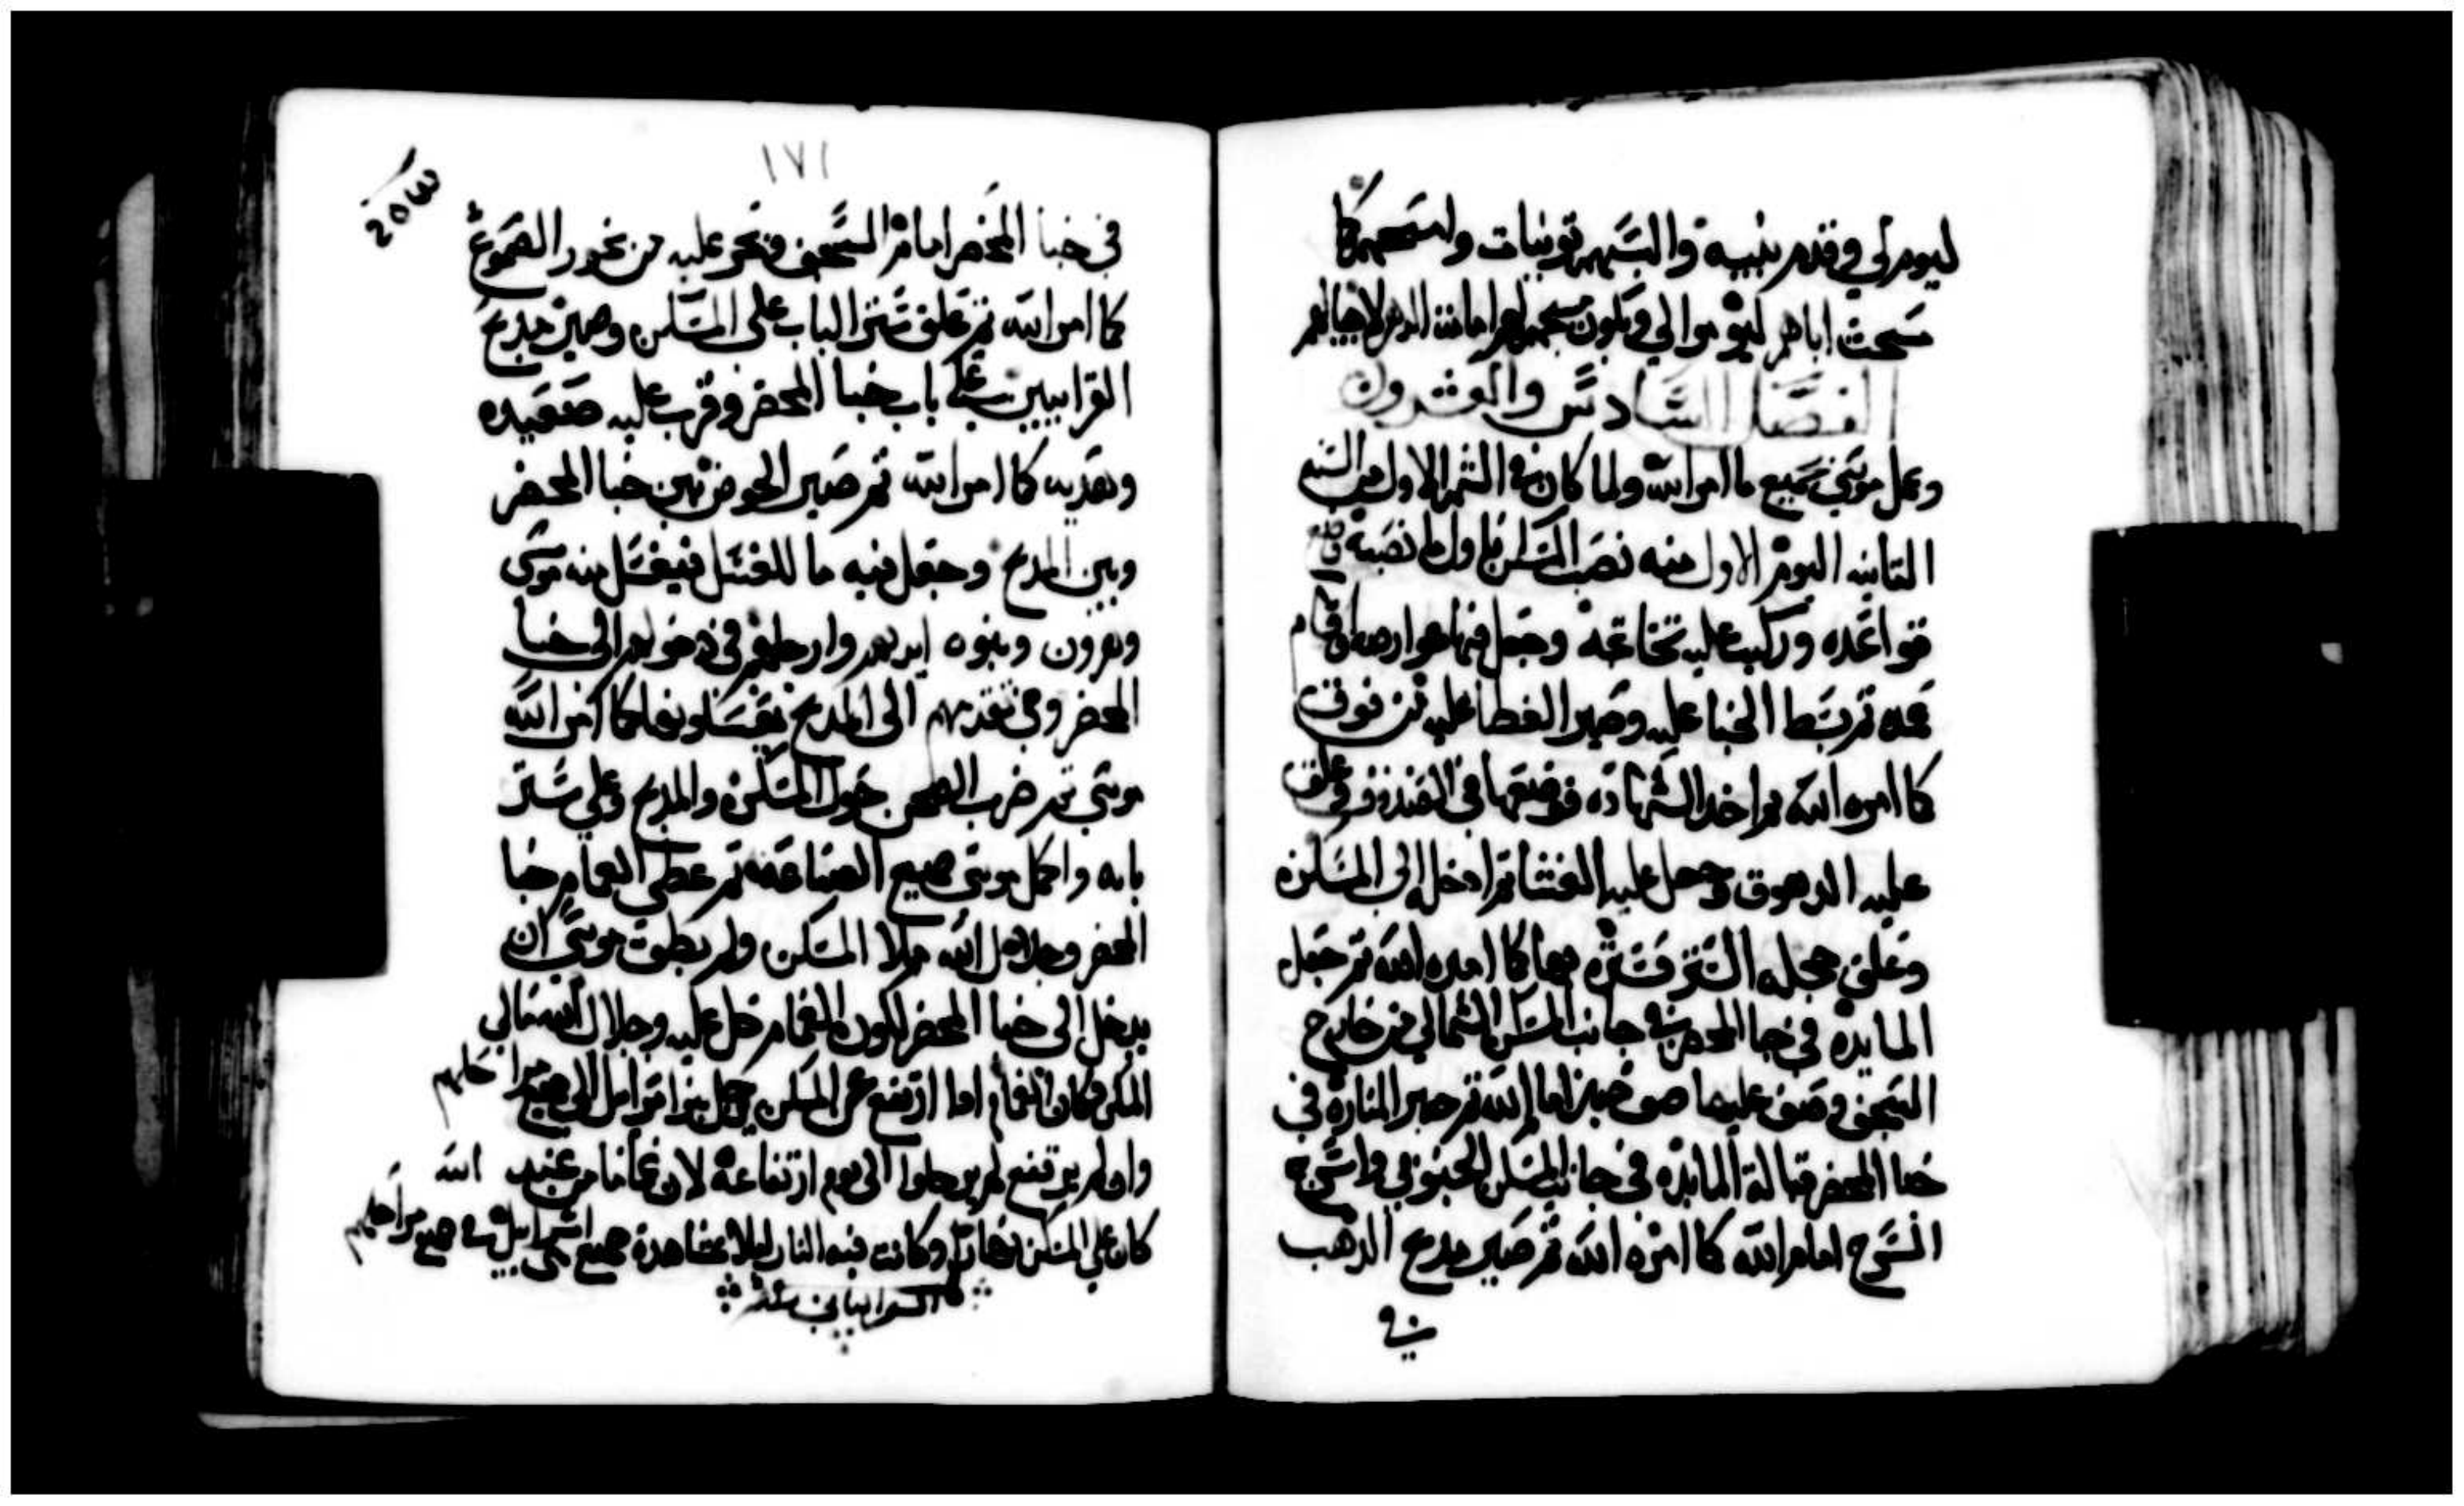 ليومرلي وقدم بنيه والبسهم تونيات وامسحهم كما
مسحت اباهم ليوموا لي وتكون مسحتهم امامة الدهر لاجيالهم
الفصل السادس والعشرون
وعمل موسى جميع ما امر الله ولما كان في الشهر الاول من السنه
الثانيه اليوم الاول منه نصب المسكن فاول ما نصبه
قواعده وركب عليه تخاتجه وجعل فيها عوارضه واقام
عمده ثم بسط الخبا عليه وصير الغطا عليه من فوق
كما امره الله ثم اخذ الشهاده فوضعها في الصندوق وعلق
عليه الدهوق وجعل عليه الغشا ثم ادخله الى المسكن
وعلق سجله الستر فستره بها كما امره الله ثم جعل
المايده في خبا المحضر في جانب المسكن الشمالي من خارج
السجف وصف عليها صف خبز امام الله ثم صير المناره في
خبا المحضر قبالة المايده في جانب المسكن الجنوبي واسرج
السرج امام الله كما امره الله ثم صير مدبح الذهب
في
١٧١
203
في خبا المحضر امام السجف وبخر عليه من بخور الصموغ
كما امر الله ثم علق ستر الباب على المسكن وصير مدبح
القرابيين على باب خبا المحضر وقرب عليه صعيده
وهديه كما امر الله ثم صير الحوض بين خبا المحضر
وبين المدبح وجعل فيه ما للغسل فيغسل منه موسى
وهرون وبنوه ايديهم وارجلهم في دخولهم الى خبا
المحضر وفي تقدمهم الى المدبح يغسلو بها كما امر الله
موسى ثم ضرب الصحن حول المسكن والمدبح وعلى ستر
بابه واكمل موسى جميع الصناعه ثم غطى الغمام خبا
المحضر وجلال الله ملا المسكن ولم يطق موسى ان
يدخل الى خبا المحضر لكون الغمام حل عليه وجلال الله تعالى
المسكن فكان الغمام اذا ارتفع عن المسكن رحل بنو اسرايل في جميع مراحلهم
وان لم يرتفع لم يرحلوا الى يوم ارتفاعه لان غماما من عند الله
كان على المسكن نهارا وكانت فيه النار ليلا مشاهدة جميع بني اسرايل في جميع مراحلهم